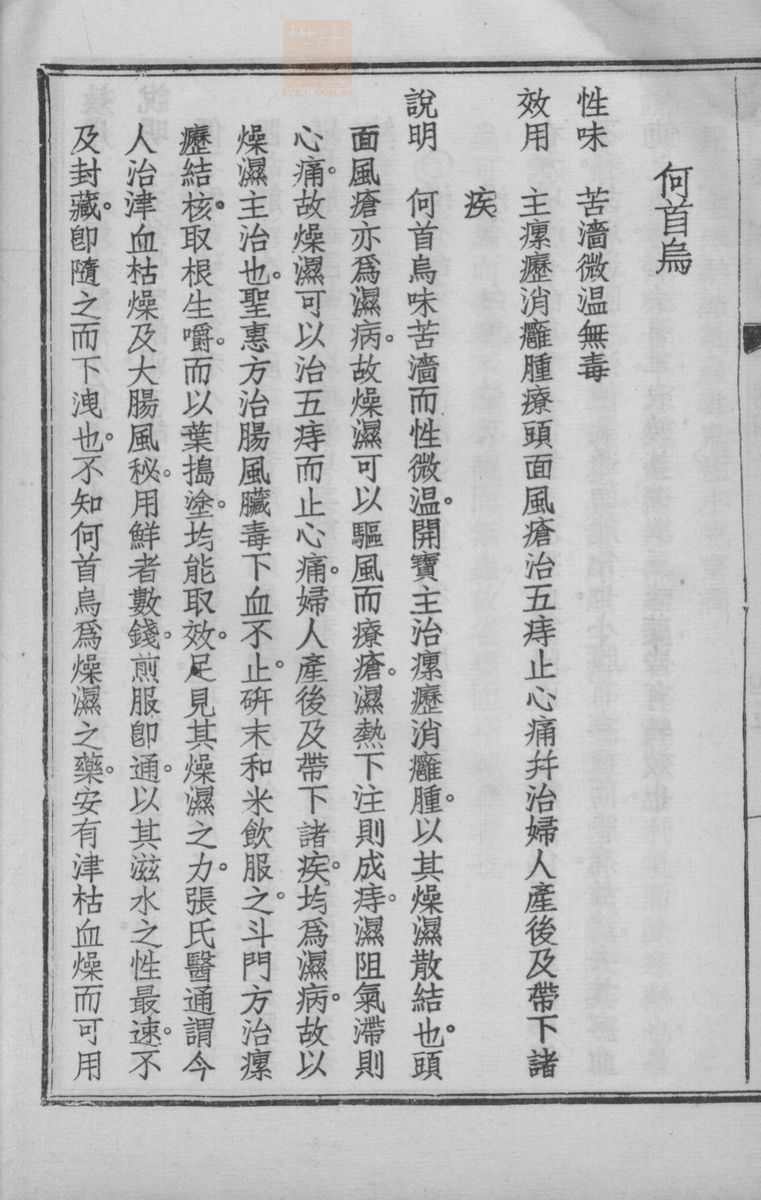 何首烏
性味　苦濇微温無毒
效用　主瘰癧消癰腫療頭面風瘡治五痔止心痛幷治婦人產後及帶下諸
疾
說明　何首烏味苦濇而性微温。開寶主治瘰癧消癰腫。以其燥濕散結也。頭
面風瘡亦爲濕病。故燥濕可以驅風而療瘡。濕熱下注則成痔。濕阻氣滯則
心痛。故燥濕可以治五痔而止心痛。婦人產後及帶下諸疾。均爲濕病。故以
燥濕主治也。聖惠方治腸風臟毒下血不止。硏末和米飮服之。斗門方治瘰
癧結核。取根生嚼。而以葉搗塗。均能取效。足見其燥濕之力。張氏醫通謂今
人治津血枯燥及大腸風秘。用鮮者數錢。煎服卽通。以其滋水之性最速。不
及封藏。卽隨之而下洩也。不知何首烏爲燥濕之藥。安有津枯血燥而可用